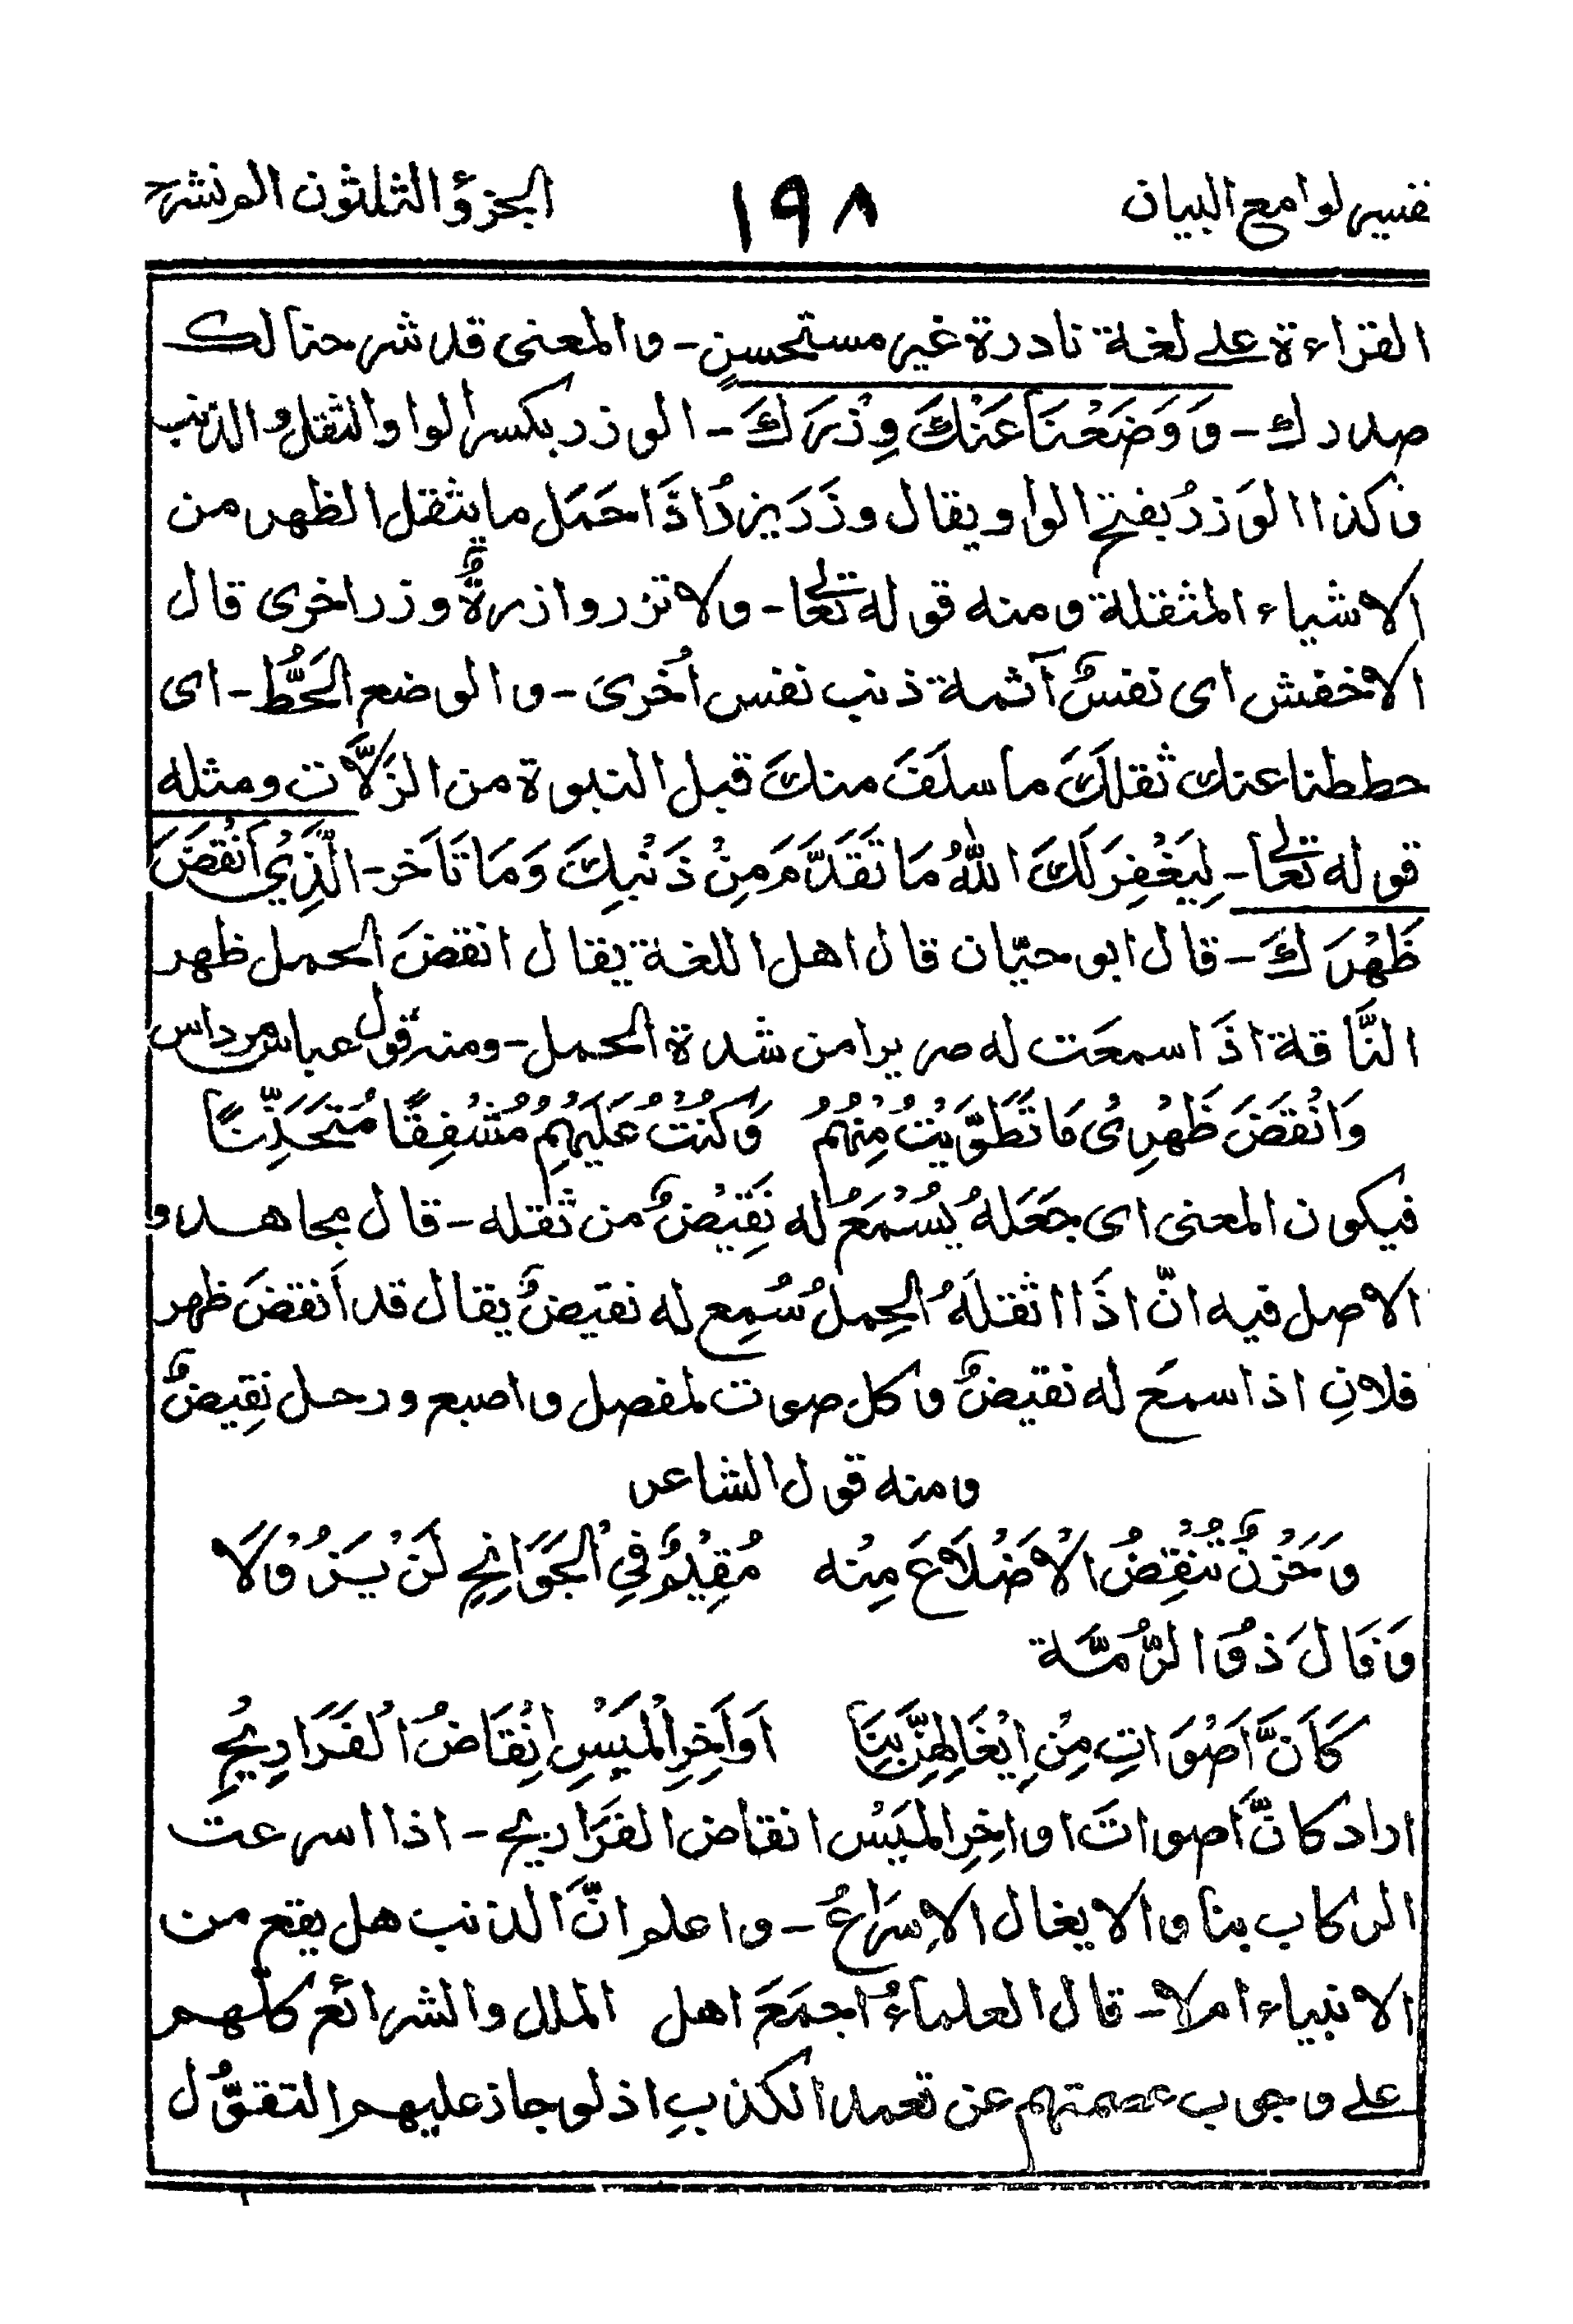 تفسير لوامع البيان
١٩٨
الجزؤ الثلثون الم نشرح
القراءة على لغة نادرة غير مستحسنٍ - والمعنى قد شرحنا لك
صدرك - وَوَضَعْنَا عَنْكَ وِزْرَكَ - الوزر بكسر الواو الثقل والذنب
وكذا الوَزرُ بفتح الواو ويقال وزَرَ يزرُ اذَا حَمَل ما يثقل الظهر من
الاشياء المثقلة ومنه قوله تعالى - ولا تزر وازرةٌ وزر اخرى قال
الاخفش اى نفسٌ آثمة ذنب نفس اُخرىٰ - والوضع الحَطُّ - اى
حططنا عنك ثقلَكَ ما سلَفَ منكَ قبل النبوة من الزَلَّات ومثله
قوله تعالى - لِيَغْفِرَ لَكَ اللّٰهُ مَا تَقَدَّمَ مِنْ ذَنْبِكَ وَمَا تَاَخر - الَّذِيْ اَنْقَضَ
ظَهْرَكَ - قال ابو حيّان قال اهل اللغة يقال انقضَ الحمل ظهر
النَّاقة اذَا سمعَت له صريرا من شدة الحمل - ومنه قول عباس مرداس
وَانْقَضَ ظَهْرِىْ مَا تَطَوَّيْتُ مِنْهُمُ وَكُنْتُ عَلَيْهِمُ مُشْفِقًا مُتَحَنِّنًا
فيكون المعنى اى جعَلهُ يُسْمَعُ له نَقِيْضٌ من ثقله - قال مجاهد و
الاصل فيه انّ اذَا اثقلَهُ الحِملُ سُمِع له نقيضٌ يقال قد اَنقضَ ظهر
فلانِ اذا سمعَ له نقيضٌ وكل صوت لمفصل واصبع ورحل نِقِيضٌ
ومنه قول الشاعر
وَحُزْنٌ تُنْقِضُ الْاَضْلَاعَ مِنْه مُقِيْمٌ فِي الْجَوَانِحِ لَنْ يَزُوْلَا
وَقَالَ ذُو الرُّمَّة
كَاَنَّ اَصْوَاتِ مِنْ اِيْغَالِهِنَّ بِنَا اَوَاَخِرِ الْمَيْسِ اِنْقَاضُ الْفَرَارِيْجِ
اراد كانَّ اصواتَ اواخِرِ الميَسْ انقاض الفَرَاريج - اذا اسرعت
الركاب بنا والايغال الاِسرَاعُ - واعلم انَّ الذنب هل يقع من
الانبياء ام لا - قال العلماءُ اجمَعَ اهل الملل والشرائع كلّهم
على وجوب عصمتهم عن تعمد الكذبِ اذ لو جاز عليهم التقوُّل